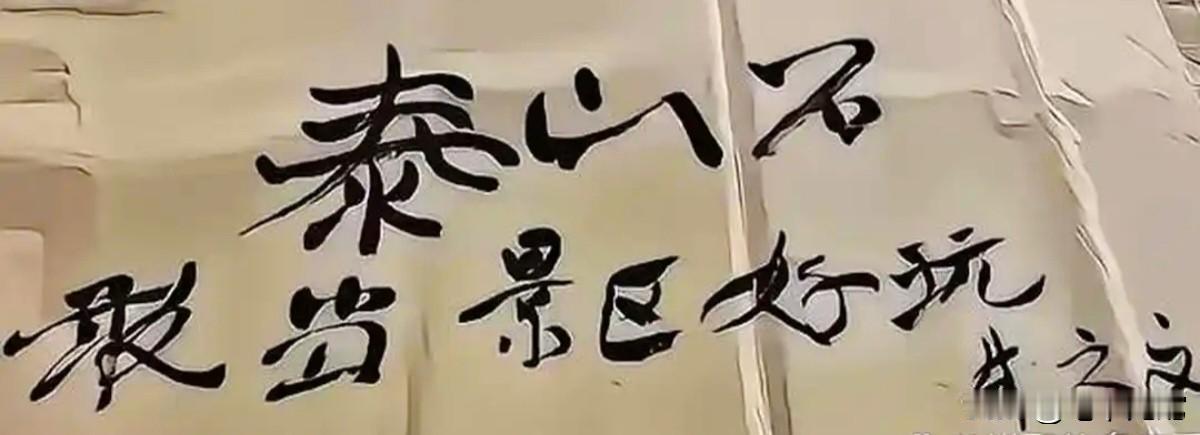 泰山石
敢当景区好玩
朱之文